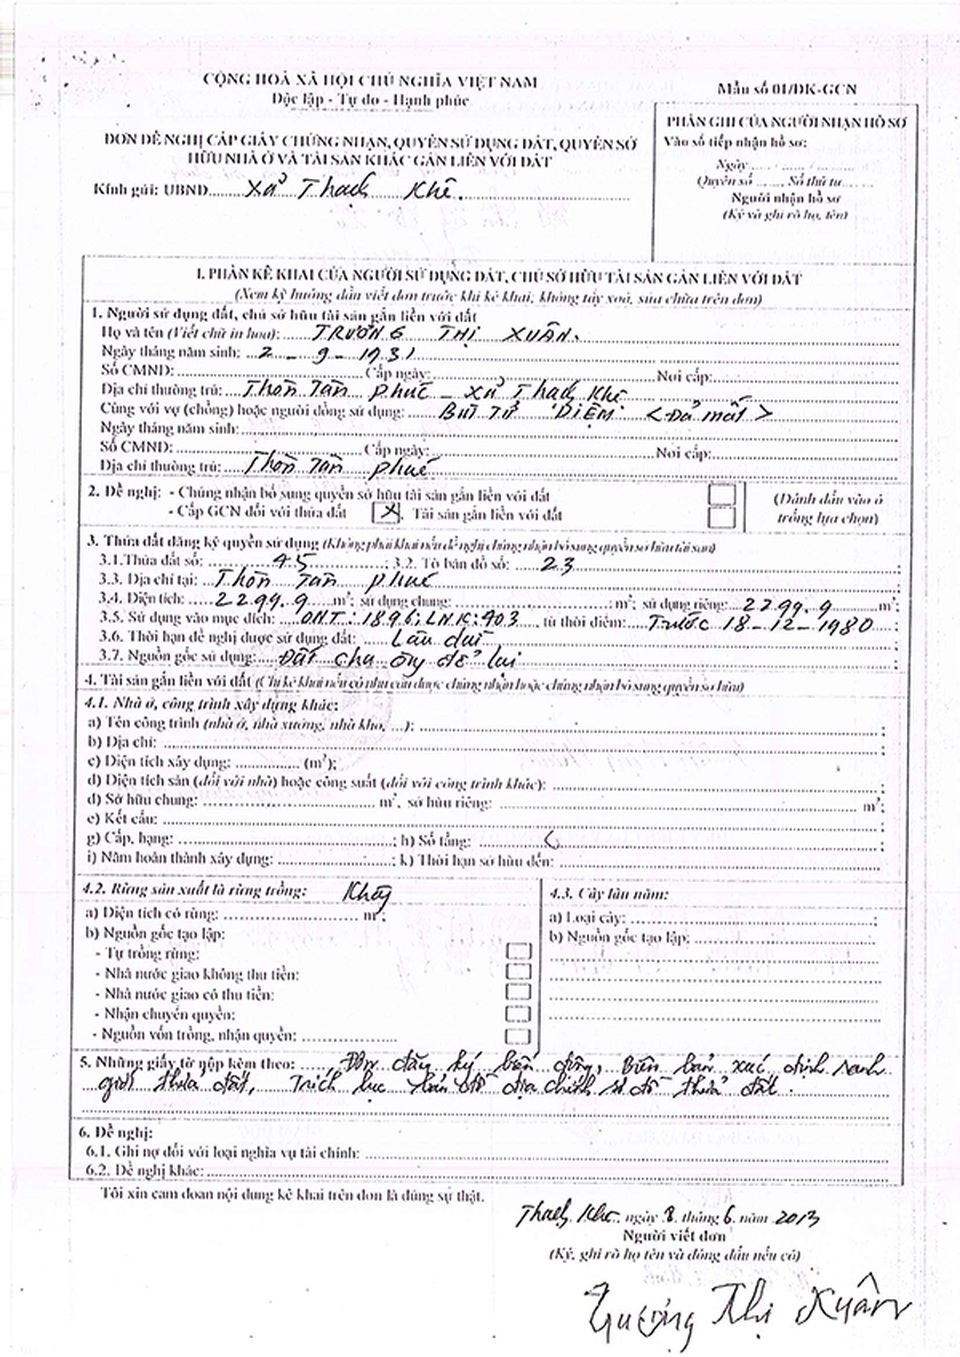 CỘNG HOÀ XÃ HỘI CHỦ NGHĨA VIỆT NAM
Độc lập - Tự do - Hạnh phúc
Mẫu số 01/ĐK-GCN
ĐƠN ĐỀ NGHỊ CẤP GIẤY CHỨNG NHẬN, QUYỀN SỬ DỤNG ĐẤT, QUYỀN SỞ
HỮU NHÀ Ở VÀ TÀI SẢN KHÁC GẮN LIỀN VỚI ĐẤT
Kính gửi: UBND Xã Thạch Khê.
PHẦN GHI CỦA NGƯỜI NHẬN HỒ SƠ
Vào sổ tiếp nhận hồ sơ:
Ngày ...... / ...... / ......
Quyển số ......, Số thứ tự ......
Người nhận hồ sơ
(Ký và ghi rõ họ, tên)
I. PHẦN KÊ KHAI CỦA NGƯỜI SỬ DỤNG ĐẤT, CHỦ SỞ HỮU TÀI SẢN GẮN LIỀN VỚI ĐẤT
(Xem kỹ hướng dẫn viết đơn trước khi kê khai, không tẩy xoá, sửa chữa trên đơn)
1. Người sử dụng đất, chủ sở hữu tài sản gắn liền với đất
Họ và tên (Viết chữ in hoa): TRƯƠNG THỊ XUÂN.
Ngày tháng năm sinh: 2 - 9 - 1931
Số CMND: Cấp ngày: Nơi cấp:
Địa chỉ thường trú: Thôn Tân phúc - xã Thạch Khê
Cùng với vợ (chồng) hoặc người đồng sử dụng: BÙI TỬ DIỆM <Đã mất>
Ngày tháng năm sinh:
Số CMND: Cấp ngày: Nơi cấp:
Địa chỉ thường trú: Thôn Tân phúc
2. Đề nghị: - Chứng nhận bổ sung quyền sở hữu tài sản gắn liền với đất
- Cấp GCN đối với thửa đất X, Tài sản gắn liền với đất
(Đánh dấu vào ô
trống lựa chọn)
3. Thửa đất đăng ký quyền sử dụng (Không phải khai nếu đề nghị chứng nhận bổ sung quyền sở hữu tài sản)
3.1.Thửa đất số: 45; 3.2. Tờ bản đồ số: 23;
3.3. Địa chỉ tại: Thôn Tân phúc
3.4. Diện tích: 2299.9 m²; sử dụng chung: m²; sử dụng riêng: 2299.9 m²;
3.5. Sử dụng vào mục đích: ONT: 1896; LNK: 403, từ thời điểm: Trước 18-12-1980
3.6. Thời hạn đề nghị được sử dụng đất: Lâu dài
3.7. Nguồn gốc sử dụng: Đất cha ông để lại
4. Tài sản gắn liền với đất (Chỉ kê khai nếu có nhu cầu được chứng nhận hoặc chứng nhận bổ sung quyền sở hữu)
4.1. Nhà ở, công trình xây dựng khác:
a) Tên công trình (nhà ở, nhà xưởng, nhà kho, ...):
b) Địa chỉ:
c) Diện tích xây dựng: (m²);
d) Diện tích sàn (đối với nhà) hoặc công suất (đối với công trình khác):
đ) Sở hữu chung: m², sở hữu riêng: m²;
e) Kết cấu:
g) Cấp, hạng: ; h) Số tầng:
i) Năm hoàn thành xây dựng: ; k) Thời hạn sở hữu đến:
4.2. Rừng sản xuất là rừng trồng: Không
a) Diện tích có rừng: m²;
b) Nguồn gốc tạo lập:
- Tự trồng rừng:
- Nhà nước giao không thu tiền:
- Nhà nước giao có thu tiền:
- Nhận chuyển quyền:
- Nguồn vốn trồng, nhận quyền:
4.3. Cây lâu năm:
a) Loại cây: ;
b) Nguồn gốc tạo lập:
5. Những giấy tờ nộp kèm theo: Đơn đăng ký biến động, Biên bản xác định ranh
giới thửa đất, Trích lục bản đồ địa chính sơ đồ thửa đất.
6. Đề nghị:
6.1. Ghi nợ đối với loại nghĩa vụ tài chính:
6.2. Đề nghị khác:
Tôi xin cam đoan nội dung kê khai trên đơn là đúng sự thật.
Thạch Khê, ngày 8 tháng 6 năm 2013
Người viết đơn
(Ký, ghi rõ họ tên và đóng dấu nếu có)
Trương Thị Xuân